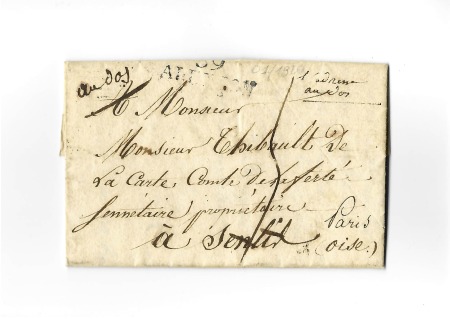 au dos
59
ALENÇON
l'adresse
au dos
A Monsieur
Monsieur Thibault De
La Carte, Comte de la ferté
Sennetaire propriétaire
à Senlis
Paris
(oise.)